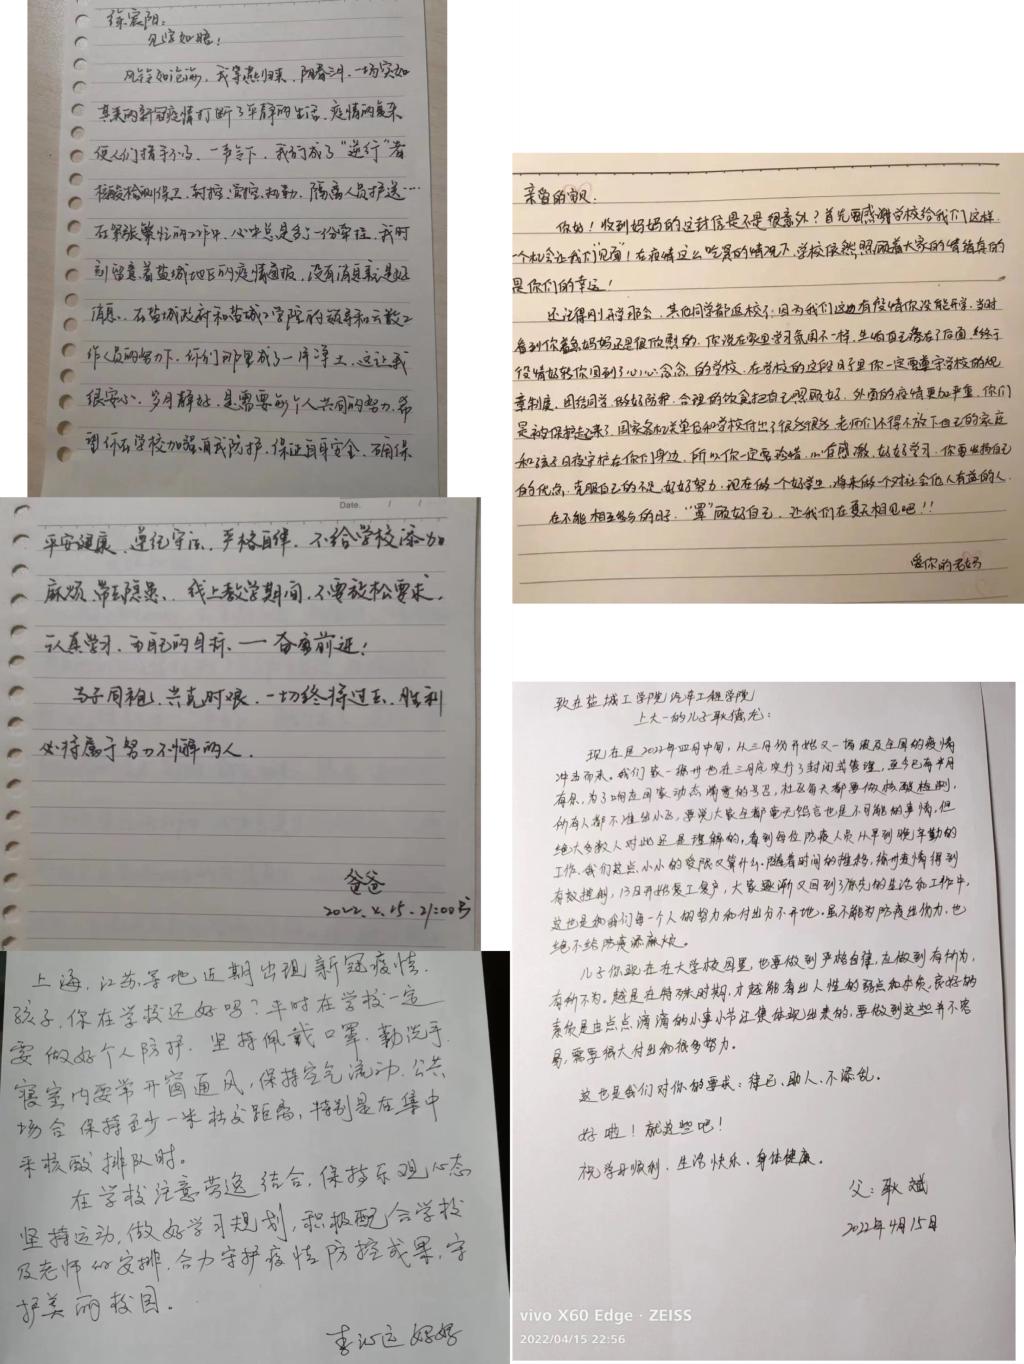 徐宸阳:
见字如晤!
风铃如沧海,我等燕归来,阳春三月,一场突如
其来的新冠疫情打断了平静的生活,疫情的复杂
使人们措手不及,一声令下,我们成了“逆行”者
核酸检测保卫、封控、管控、执勤、隔离人员护送…
在紧张繁忙的工作中,心中总是多了一份牵挂,我时
刻留意着盐城地区的疫情通报,没有消息就是好
消息,在盐城政府和盐城工学院的领导和云数工
作人员的努力下,你们那里成了一片净土,这让我
很安心,岁月静好,是需要每个人共同的努力,希
望你在学校加强自我防护,保证自身安全,确保
Date.
平安健康、遵纪守法、严格自律,不给学校添加
麻烦、带去隐患、线上教学期间,不要放松要求,
认真学习,向自己的目标,一一奋勇前进!
与子同袍,共克时艰,一切终将过去,胜利
必将属于努力不懈的人.
爸爸
2022.4.15.21:00
上海,江苏等地近期出现新冠疫情.
孩子,你在学校还好吗?平时在学校一定
要做好个人防护.坚持佩戴口罩,勤洗手.
寝室内要常开窗通风,保持空气流动.公共
场合保持至少一米社交距离,特别是在集中
采核酸排队时。
在学校注意劳逸结合,保持乐观心态
坚持运动,做好学习规划,积极配合学校
及老师的安排.合力守护疫情防控成果,守
护美丽校园。
李沁远妈妈
亲爱的
你好!收到妈妈的这封信是不是很意外?首先要感谢学校给我们这样
一个机会让我们“见面”!在疫情这么吃紧的情况下,学校依然照顾着大家的情绪真的
是你们的幸运!
还记得刚开学那会,其他同学都返校了,因为我们这边有疫情你没能开学,当时
看到你着急妈妈还是很欣慰的,你说在家里学习氛围不一样,生怕自己落在了后面。终于
疫情好转你回到了心心念念的学校.在学校的这段日子里你一定要遵守学校的规
章制度,团结同学,做好防护,合理的饮食把自己照顾好.外面的疫情更加严重,你们
是被保护起来了,国家各机关单位和学校付出了很多很多,老师们不得不放下自己的家庭
和孩子日夜守护在你们身边,所以你一定要珍惜,心有感激,好好学习,你要发扬自己
的优点,克服自己的不足,好好努力,现在做一个好学生,将来做一个对社会他人有益的人.
在不能相互参与的日子,“罩”顾好自己,让我们在夏天相见吧!!
爱你的老妈
致在盐城工学院汽车工程学院
上大一的儿子耿德龙:
现在是2022年四月中旬,从三月份开始又一场波及全国的疫情
冲击而来。我们家—徐州也在三月底实行了封闭式管理,至今已有半月
有余,为了响应国家动态清零的号召,社区每天都要做核酸检测,
所有人都不准出小区,要说大家全都毫无怨言也是不可能的事情,但
绝大多数人对此还是理解的,看到每位防疫人员从早到晚辛勤的
工作,我们这点小小的受限又算什么。随着时间的推移,徐州疫情得到
有效控制,13日开始复工复产,大家逐渐又回到了原先的生活和工作中,
这也是和我们每一个人的努力和付出分不开地。虽不能为防疫出份力,也
绝不给防疫添麻烦。
儿子你现在在大学校园里,也要做到严格自律,应做到有所为,
有所不为。越是在特殊时期,才越能看出人性的弱点和本质,良好的
素质是由点点滴滴的小事小节汇集体现出来的,要做到这些并不容
易,需要很大付出和很多努力。
这也是我们对你的要求:律己、助人、不添乱。
好啦!就这些吧!
祝学习顺利、生活快乐、身体健康。
父:耿斌
2022年4月15日
vivo X60 Edge · ZEISS
2022/04/15 22:56